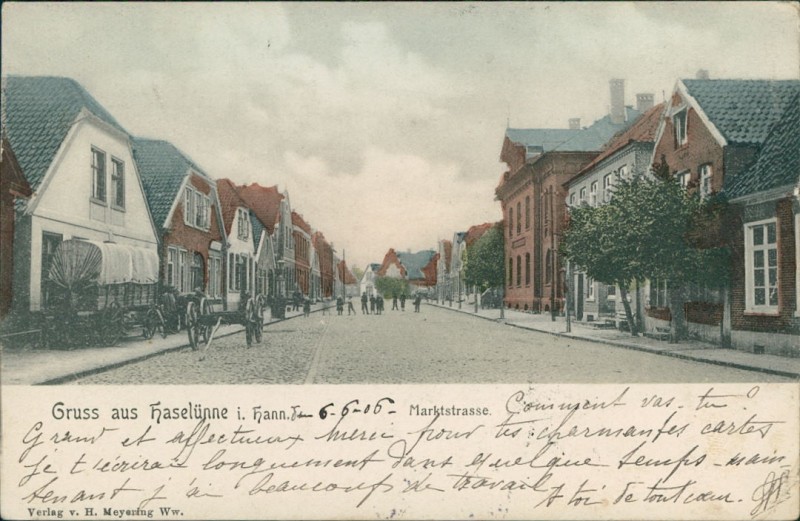 Gruss aus Haselünne i. Hann. 6-6-06- Marktstrasse. Comment vas-tu?
Grand et affectueux merci pour tes charmantes cartes
je t'écrirai longuement dans quelque temps - main
tenant j'ai beaucoup de travail A toi de tout cœur.
Verlag v. H. Meyering Ww.